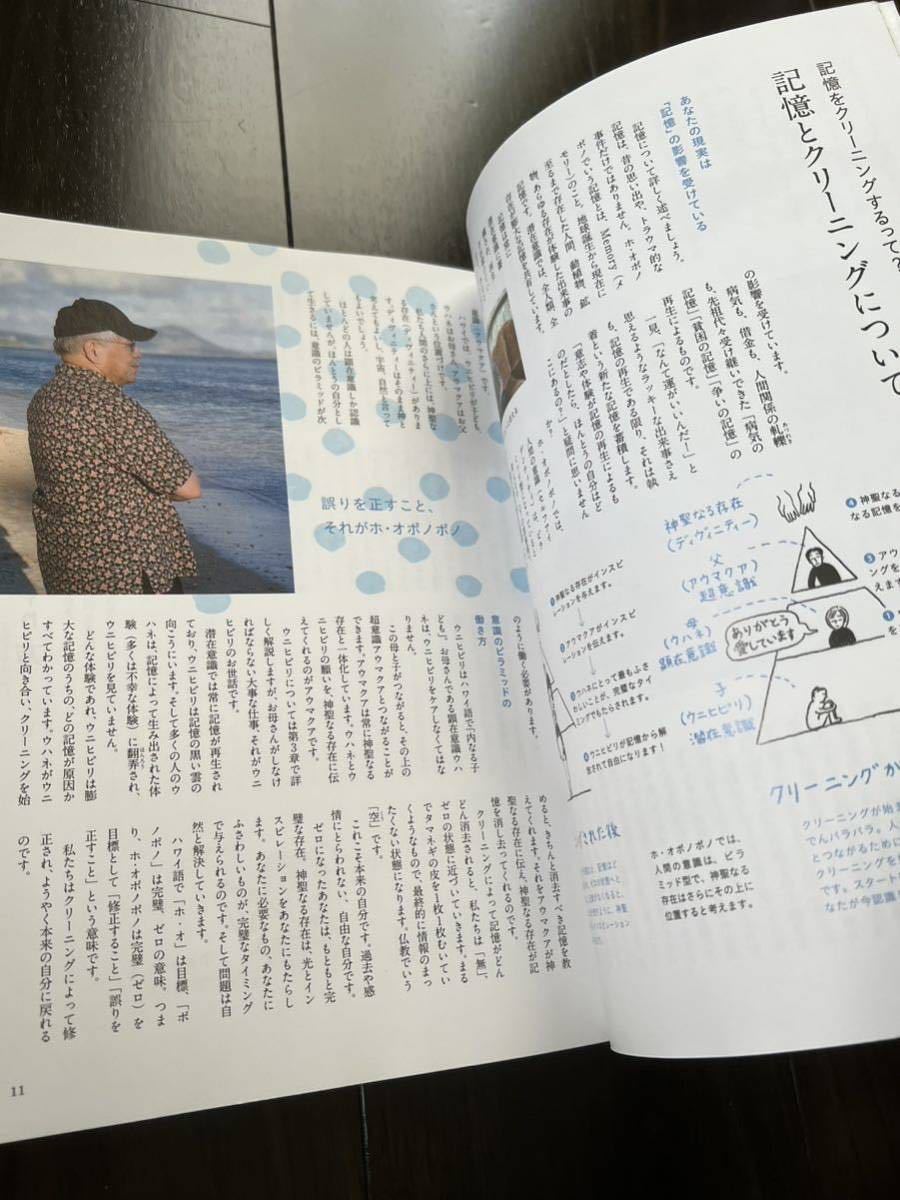 記憶をクリーニングするって？
記憶とクリーニングについて
あなたの現実は
「記憶」の影響を受けている
記憶について詳しく述べましょう。
記憶は、昔の思い出や、トラウマ的な
事件だけではありません。ホ・オポノ
ポノでいう記憶とは、Memory（メ
モリー）のこと。地球誕生から現在に
至るまで存在した人間、動植物、鉱
物、あらゆる存在が体験した出来事の
記憶です。潜在意識では、全人類、全
の影響を受けています。
病気も、借金も、人間関係の軋轢
も、先祖代々受け継いできた「病気の
記憶」「貧困の記憶」「争いの記憶」の
再生によるものです。
一見、「なんて運がいいんだ！」と
思えるようなラッキーな出来事さえ
も、記憶の再生である限り、それは執
着という新たな記憶を蓄積します。
「意志や体験が記憶の再生によるも
のだとしたら、ほんとうの自分はど
こにあるの？」と疑問に思いません
か？
ホ・オポノポノでは、
神聖なる存在
（ディヴィニティー）
父
（アウマクア）
超意識
母
（ウハネ）
顕在意識
子
（ウニヒピリ）
潜在意識
ありがとう
愛しています
❹神聖なる
なる記憶を
❸アウ
ングを
えます
❶神聖なる存在がインスピ
レーションを与えます。
❷アウマクアがインスピ
レーションを伝えます。
❸ウハネにとって最もふさ
わしいことが、完璧なタイ
ミングでもたらされます。
❹ウニヒピリが記憶から解
放されて自由になります！
ホ・オポノポノでは、
人間の意識は、ピラ
ミッド型で、神聖なる
存在はさらにその上に
位置すると考えます。
クリーニングか
クリーニングが始ま
でんバラバラ。人
とつながるために
クリーニングを
です。スタート
なたが今認識し
意識（アウマクア）です。
ハワイでは、ウニヒピリが子ども、
ウハネはお母さん、アウマクアはお父
さんという位置づけです。
私たち人間のさらに上には、神聖な
る存在（ディヴィニティー）がありま
す。ディヴィニティーはそのまま神と
考えてもよいし、宇宙、自然と言って
もよいでしょう。
ほとんどの人は顕在意識しか認識
していませんが、ほんとうの自分とし
て生きるには、意識のピラミッドが次
誤りを正すこと、
それがホ・オポノポノ
のように働く必要があります。
意識のピラミッドの
働き方
ウニヒピリはハワイ語で「内なる子
ども」。お母さんである顕在意識ウハ
ネは、ウニヒピリをケアしなくてはな
りません。
この母と子がつながると、その上の
超意識アウマクアとつながることが
できます。アウマクアは常に神聖なる
存在と一体化しています。ウハネとウ
ニヒピリの願いを、神聖なる存在に伝
えてくれるのがアウマクアです。
ウニヒピリについては第3章で詳
しく解説しますが、お母さんがしなけ
ればならない大事な仕事、それがウニ
ヒピリのお世話です。
潜在意識では常に記憶が再生され
ており、ウニヒピリは記憶の黒い雲の
向こうにいます。そして多くの人のウ
ハネは、記憶によって生み出された体
験（多くは不幸な体験）に翻弄され、
ウニヒピリを見ていません。
どんな体験であれ、ウニヒピリは膨
大な記憶のうちの、どの記憶が原因か
すべてわかっています。ウハネがウニ
ヒピリと向き合い、クリーニングを始
めると、きちんと消去すべき記憶を教
えてくれます。それをアウマクアが神
聖なる存在に伝え、神聖なる存在が記
憶を消し去ってくれるのです。
クリーニングによって記憶がどん
どん消去されると、私たちは「無」、
ゼロの状態に近づいていきます。まる
でタマネギの皮を1枚1枚むいてい
くようなもので、最終的に情報のまっ
たくない状態になります。仏教でいう
「空」です。
これこそ本来の自分です。過去や感
情にとらわれない、自由な自分です。
ゼロになったあなたは、もともと完
璧な存在。神聖なる存在は、光とイン
スピレーションをあなたにもたらし
ます。あなたに必要なもの、あなたに
ふさわしいものが、完璧なタイミング
で与えられるのです。そして問題は自
然と解決していきます。
ハワイ語で「ホ・オ」は目標、「ポ
ノポノ」は完璧、ゼロの意味。つま
り、ホ・オポノポノは完璧（ゼロ）を
目標として「修正すること」「誤りを
正すこと」という意味です。
私たちはクリーニングによって修
正され、ようやく本来の自分に戻れる
のです。
11